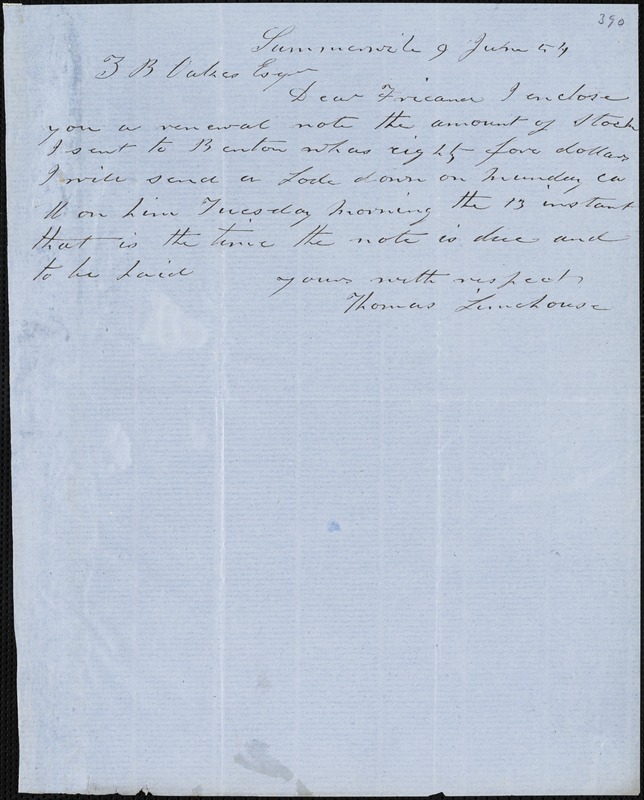 390
Summervile 9 June 54
Z B Oakes Esqr
Dear Friend I enclose
you a renewal note the amount of stock
I sent to Benton whas eighty five dollars
I will send a Lode down on munday ca
ll on him Tuesday morning the 13 instant
that is the time the note is due and
to be paid
yours with respect
Thomas Limehouse